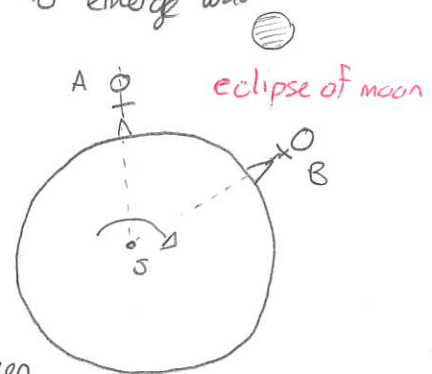 to emerge
A
eclipse of moon
B
S